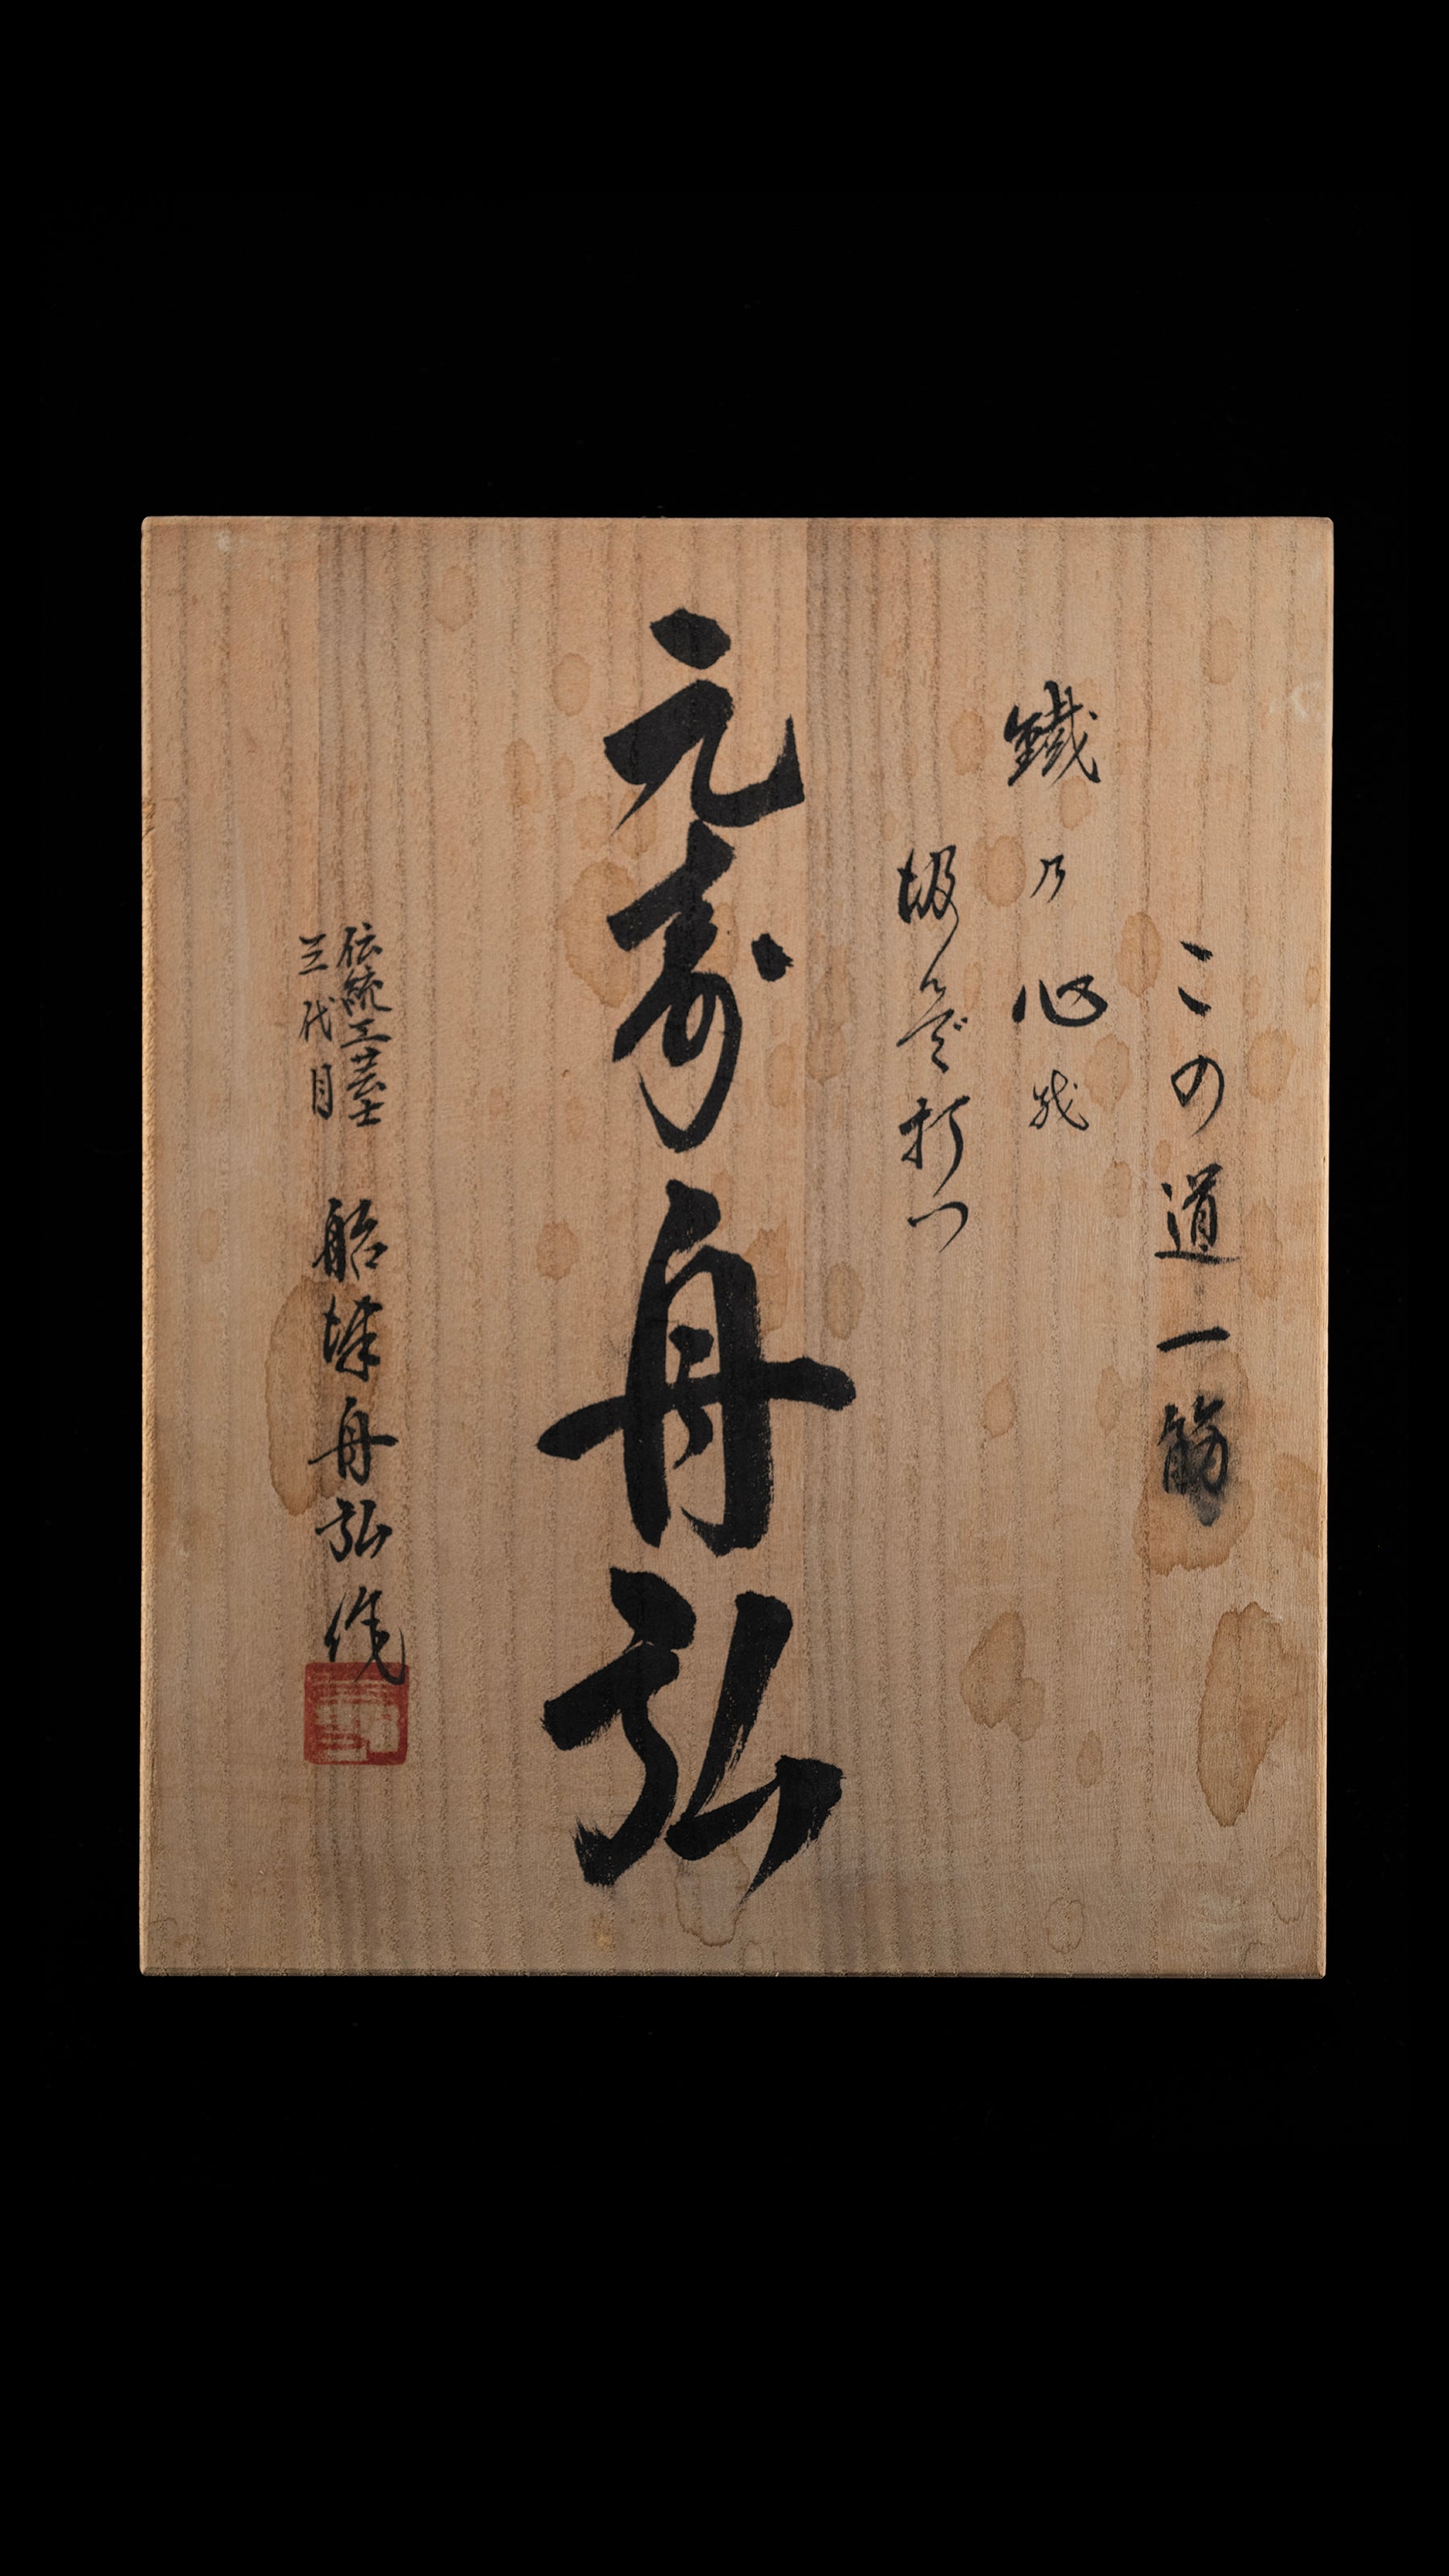 この道一筋
鐵乃心
打つ
元寿舟弘
伝統工芸士
三代目
船津舟弘作